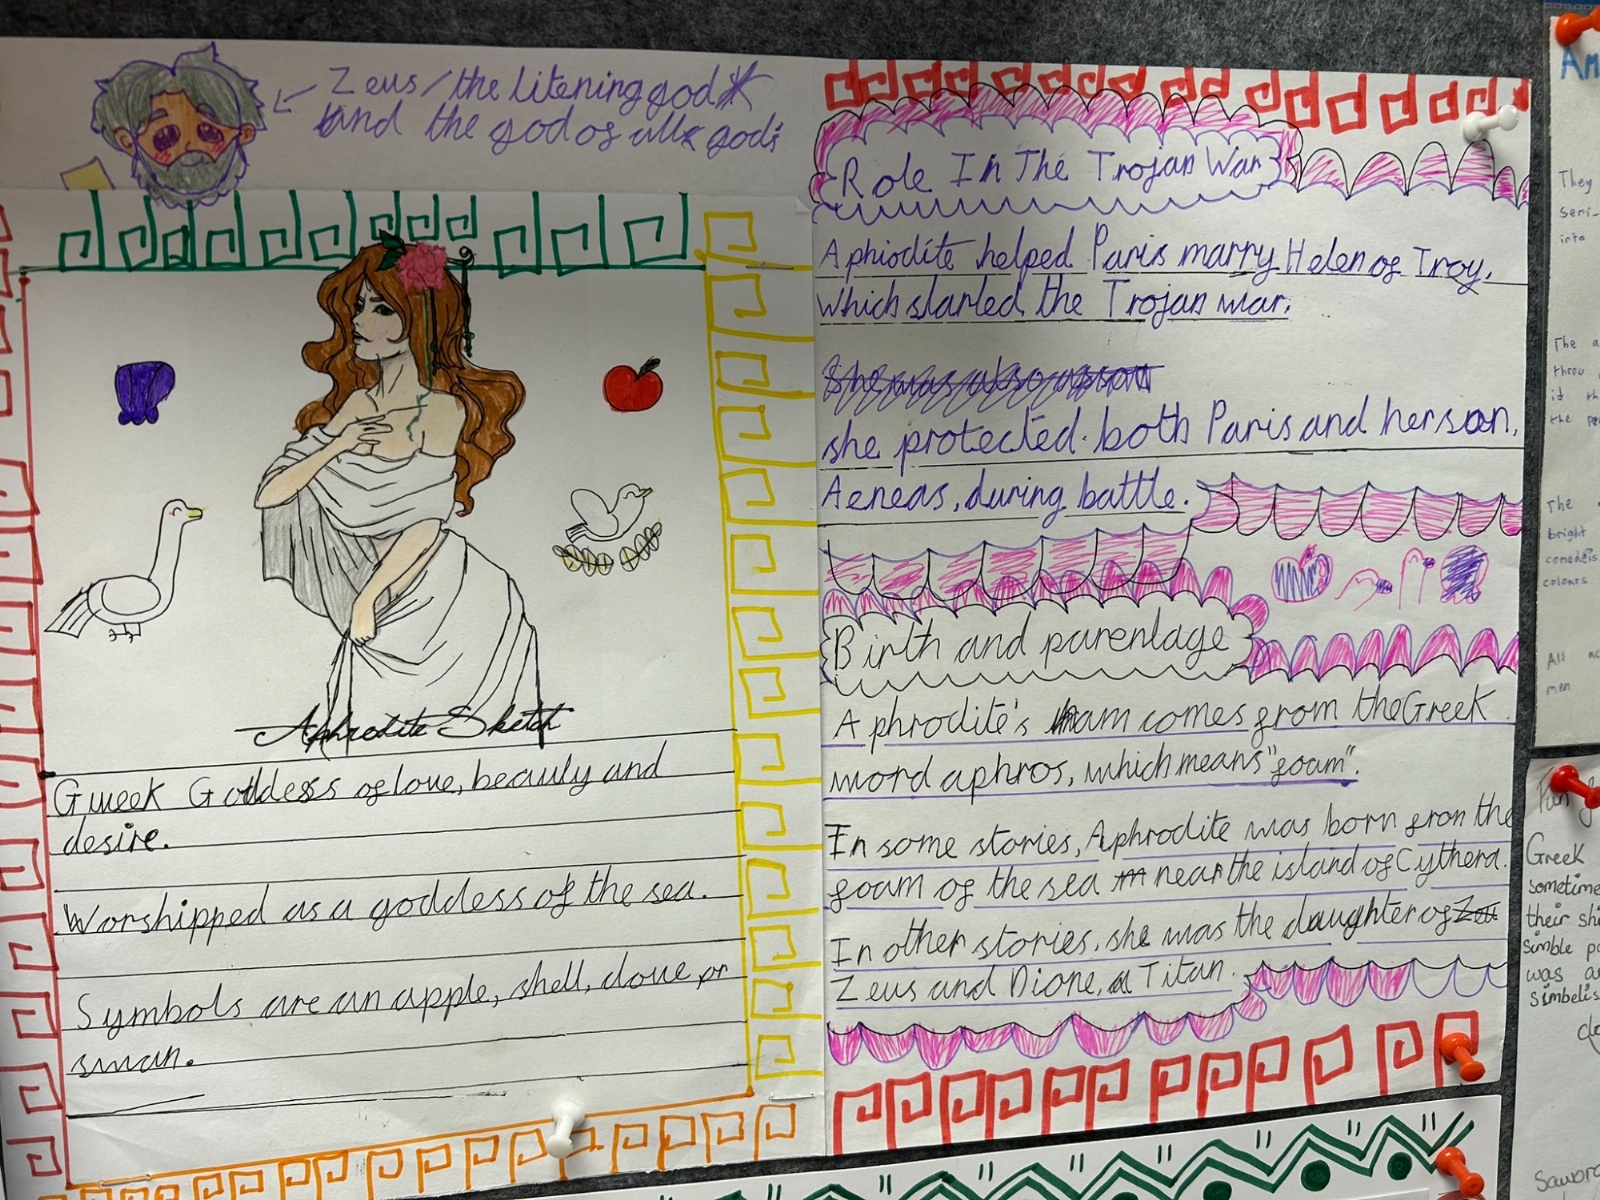 Zeus/the litening god
and the god of all gods
Aphrodite Sketch
Greek Goddess of love, beauty and
desire.
Worshipped as a goddess of the sea.
Symbols are an apple, shell, dove or
swan.
Role In The Trojan War
Aphrodite helped Paris marry Helen of Troy,
which started the Trojan war.
she protected both Paris and her son,
Aeneas, during battle.
Birth and parentage
Aphrodite's nam comes from the Greek
word aphros, which means "foam".
In some stories, Aphrodite was born from the
foam of the sea near the island of Cythera.
In other stories, she was the daughter of
Zeus and Dione, a Titan.
Am
They
Semi-
into
The a
throu
it th
the pe
The
bright
colours
All
men
Greek
sometime
their shi
simble po
was a
simbelis